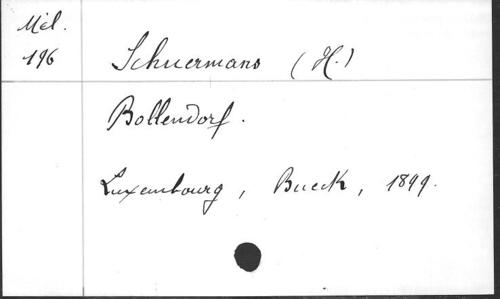 Mél.
196
Schuermans (H.)
Bollendorf.
Luxembourg, Bueck, 1899.